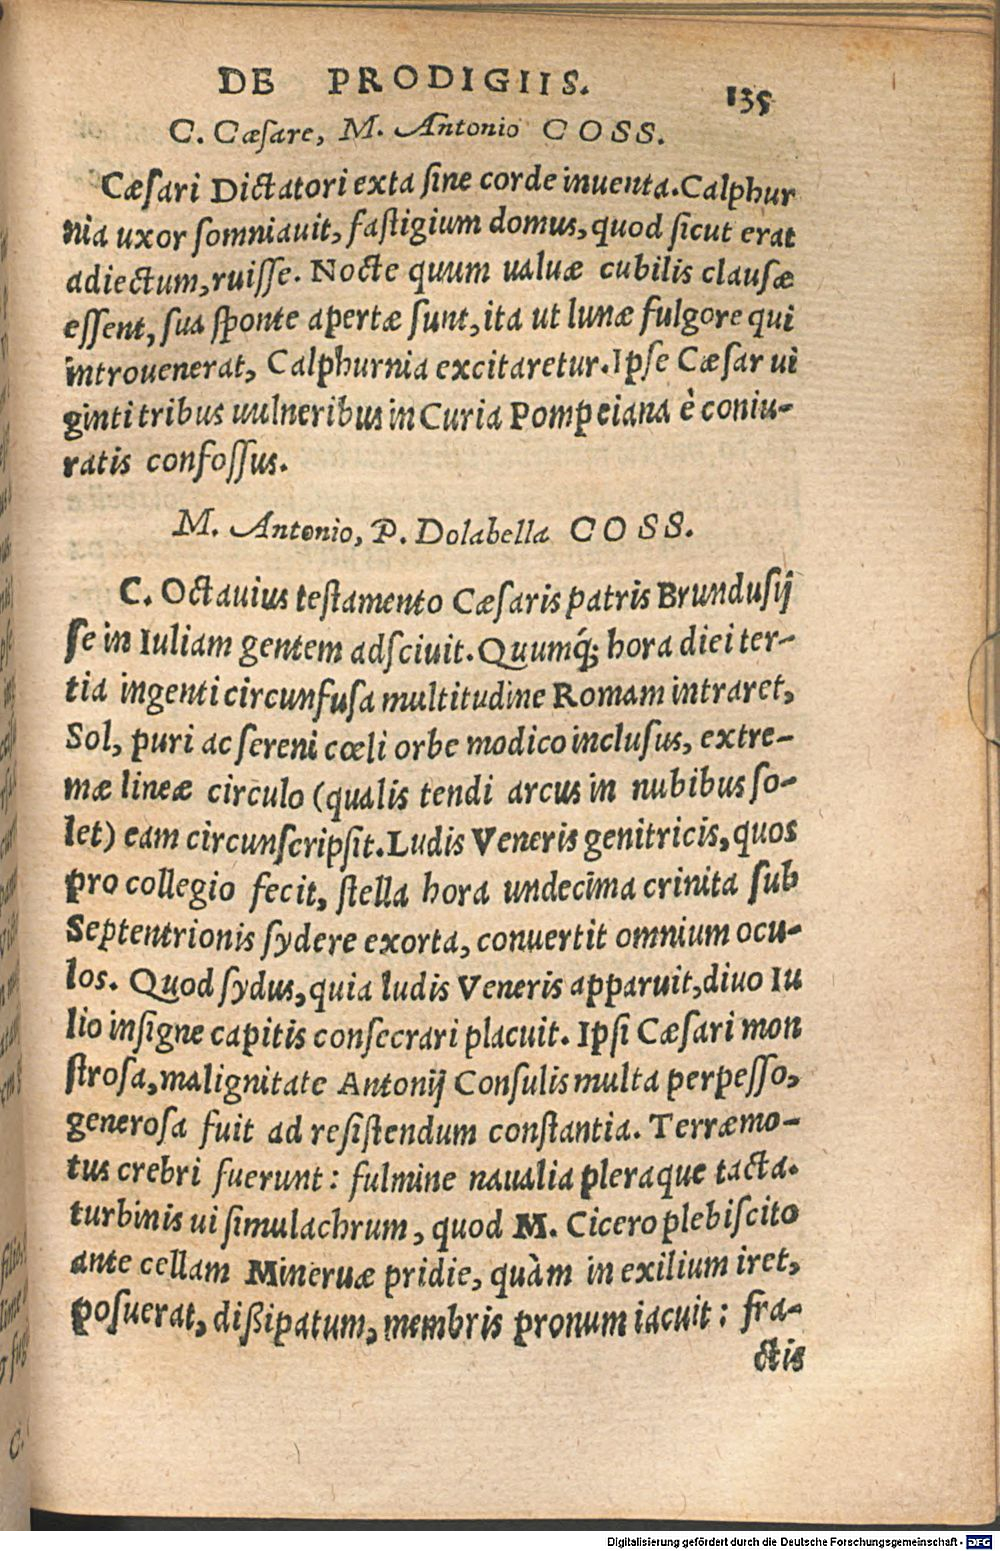 DE PRODIGIIS. 135
C. Cæſare, M. Antonio COSS.
Cæſari Dictatori exta ſine corde inuenta. Calphur
nia uxor ſomniauit, faſtigium domus, quod ſicut erat
adiectum, ruiſſe. Nocte quum ualuæ cubilis clauſæ
eſſent, ſua ſponte apertæ ſunt, ita ut lunæ fulgore qui
introuenerat, Calphurnia excitaretur. Ipſe Cæſar ui
ginti tribus uulneribus in Curia Pompeiana è coniu-
ratis confoſſus.
M. Antonio, P. Dolabella COSS.
C. Octauius teſtamento Cæſaris patris Brunduſij
ſe in Iuliam gentem adſciuit. Quumq́; hora diei ter-
tia ingenti circunfuſa multitudine Romam intraret,
Sol, puri ac ſereni cœli orbe modico incluſus, extre-
mæ lineæ circulo (qualis tendi arcus in nubibus ſo-
let) eam circunſcripſit. Ludis Veneris genitricis, quos
pro collegio fecit, ſtella hora undecima crinita ſub
Septentrionis ſydere exorta, conuertit omnium ocu-
los. Quod ſydus, quia ludis Veneris apparuit, diuo Iu
lio inſigne capitis conſecrari placuit. Ipſi Cæſari mon
ſtroſa, malignitate Antonij Conſulis multa perpeſſo,
generoſa fuit ad reſiſtendum conſtantia. Terræmo-
tus crebri fuerunt: fulmine naualia pleraque tacta.
turbinis ui ſimulachrum, quod M. Cicero plebiſcito
ante cellam Mineruæ pridie, quàm in exilium iret,
poſuerat, dißipatum, membris pronum iacuit: fra-
ctis
Digitalisierung gefördert durch die Deutsche Forschungsgemeinschaft - DFG